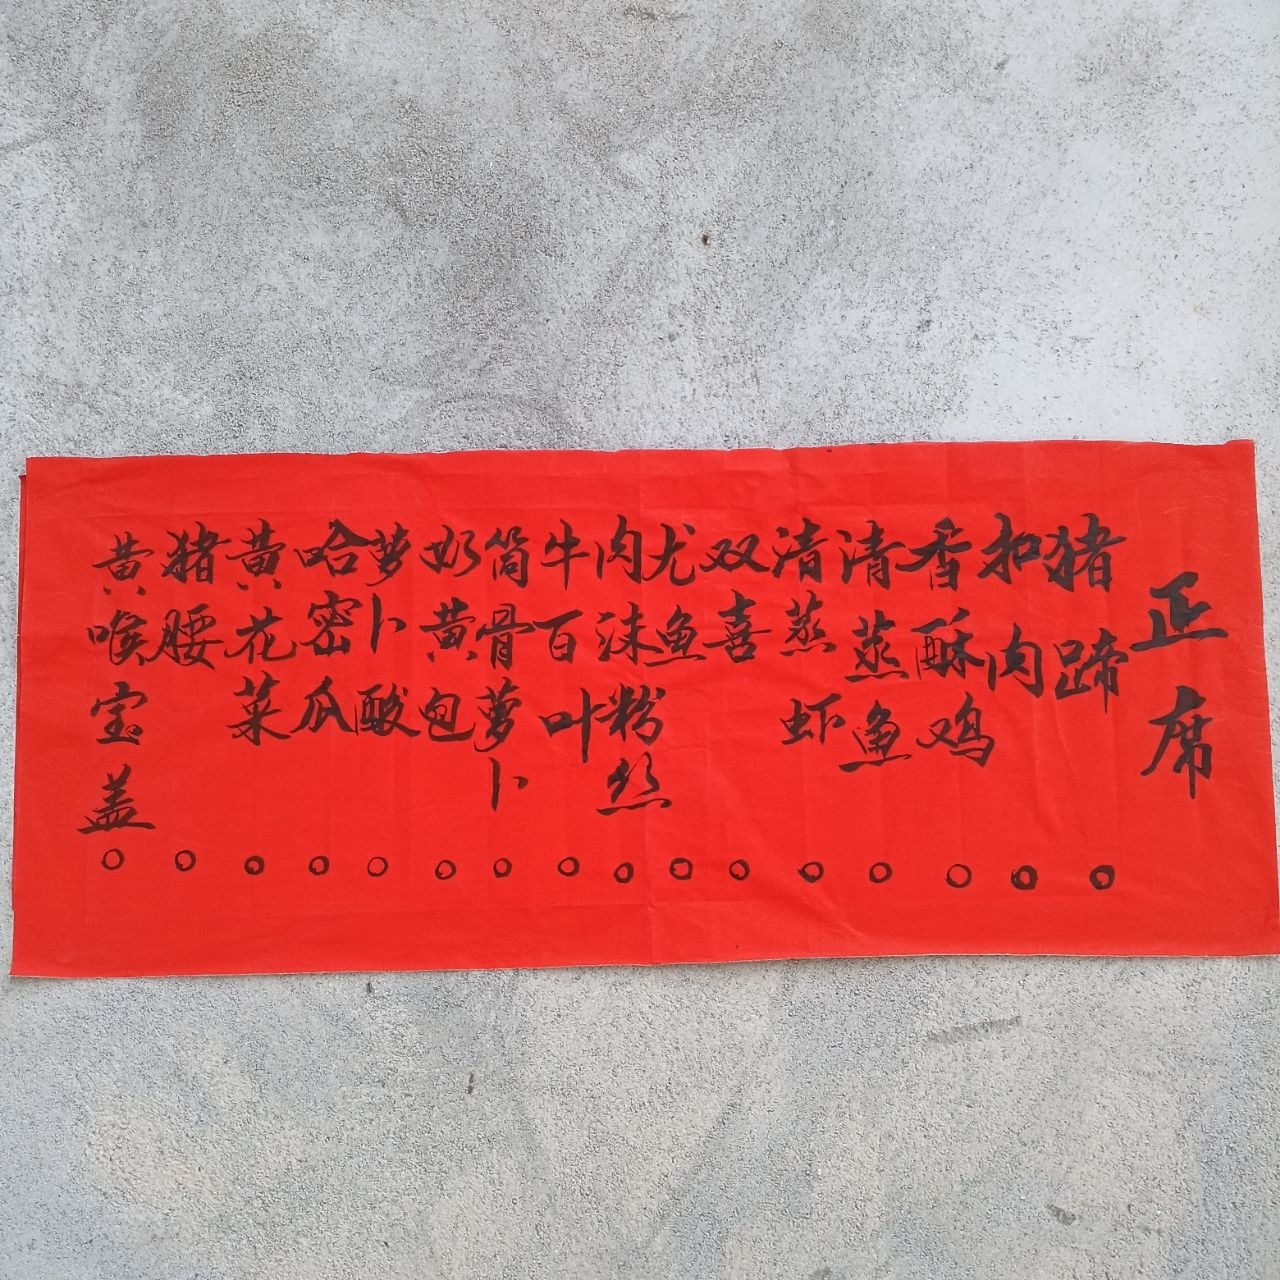 正席
猪蹄
扣肉
香酥鸡
清蒸鱼
清蒸虾
双喜
尤鱼
肉沫粉丝
牛百叶
筒骨萝卜
奶黄包
萝卜酸
哈密瓜
黄花菜
猪腰
黄喉宝盖